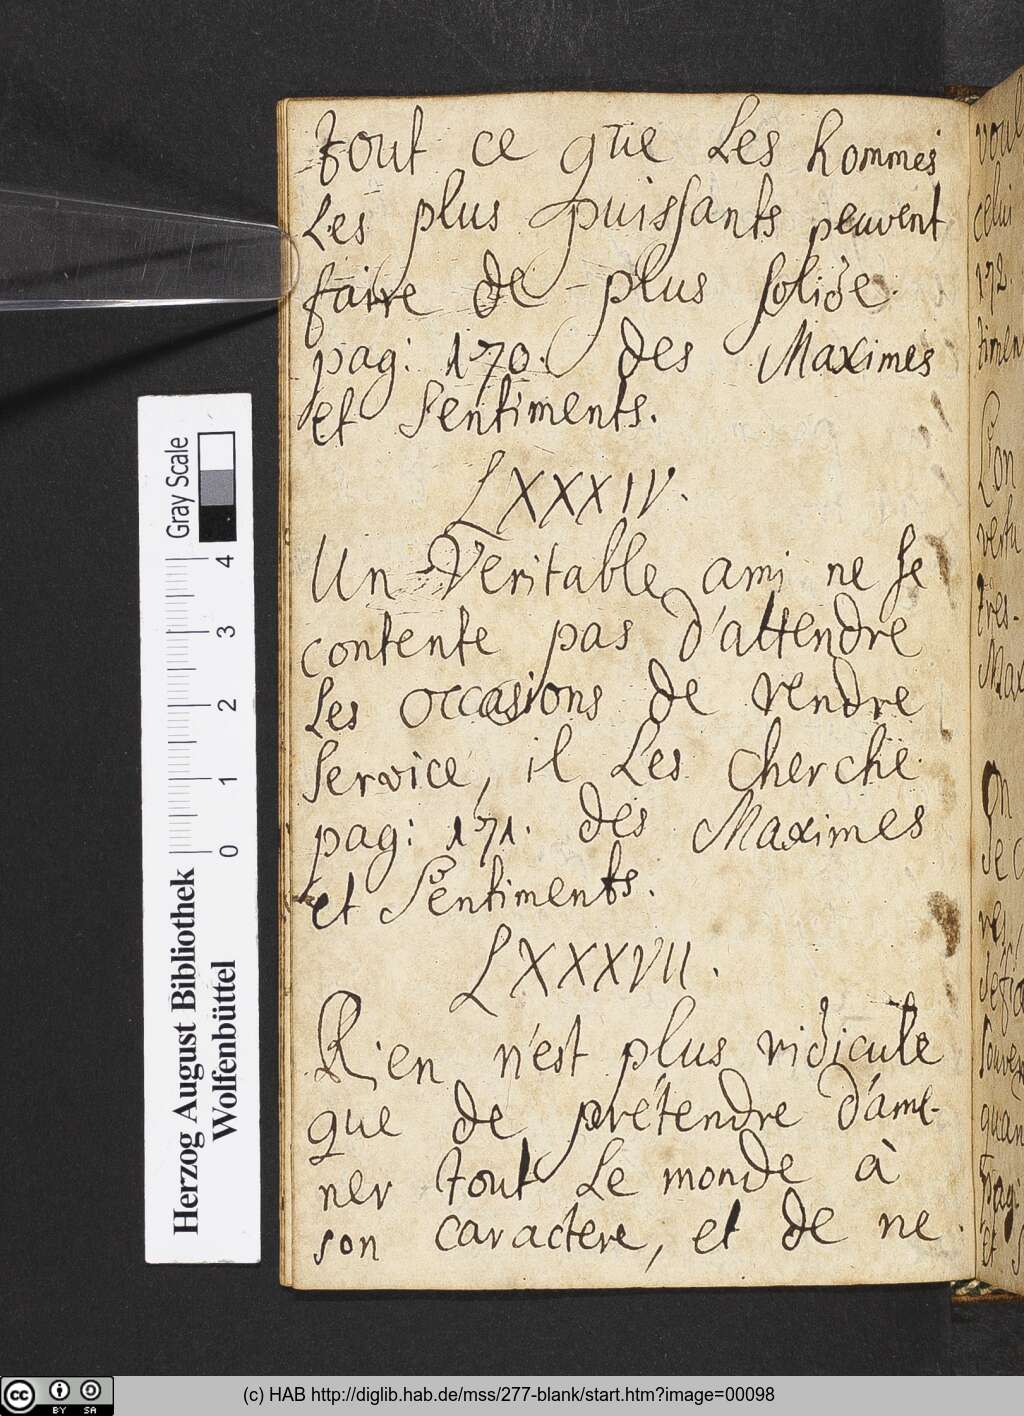 tout ce que Les hommes
Les plus puissants peuvent
faire de plus solide.
pag: 170. des Maximes
et Sentiments.
LXXXIV.
Un Veritable ami ne se
contente pas d'attendre
Les occasions de rendre
service, il Les cherche.
pag: 171. des Maximes
et Sentiments.
LXXXVII.
Rien n'est plus ridicule
que de prétendre d'ame-
ner tout Le monde à
son caractere, et de ne
celui
172.
timen
L'on
vertu
tres-
Max
On
quan
pag:
et S
Gray Scale
4 3 2 1 0
Herzog August Bibliothek
Wolfenbüttel
cc BY SA
(c) HAB http://diglib.hab.de/mss/277-blank/start.htm?image=00098